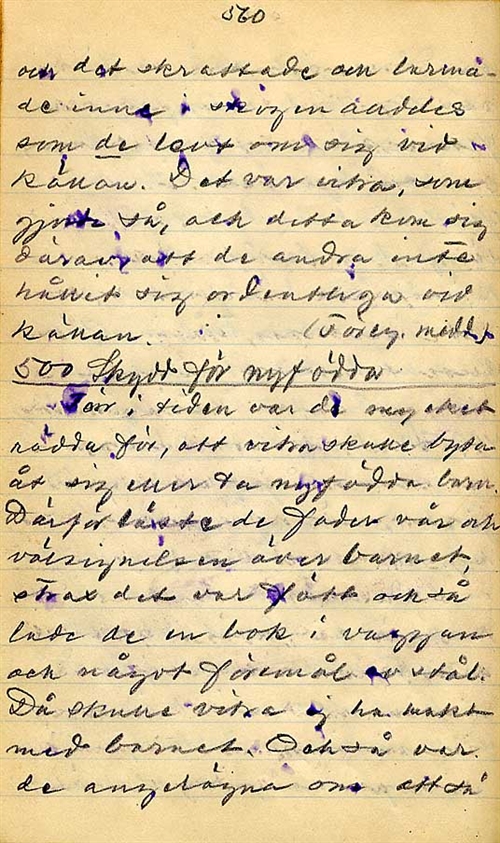 560
och det skrattade och larma-
de inne i skogen alldeles
som de levt om sig vid
källan. Det var vitra, som
gjorde så, och detta kom sig
därav, att de andra inte
hållit sig ordentliga vid
källan. (Föreg. medd.)
500 Skydd för nyfödda
Förr i tiden var de mycket
rädda för, att vitra skulle byta
åt sig eller ta nyfödda barn.
Därför läste de Fader vår och
välsignelsen över barnet,
strax det var fött, och så
lade de en bok i vaggan
och något föremål av stål.
Då skulle vitra ej ha makt
med barnet. Och så var
de angelägna om att så